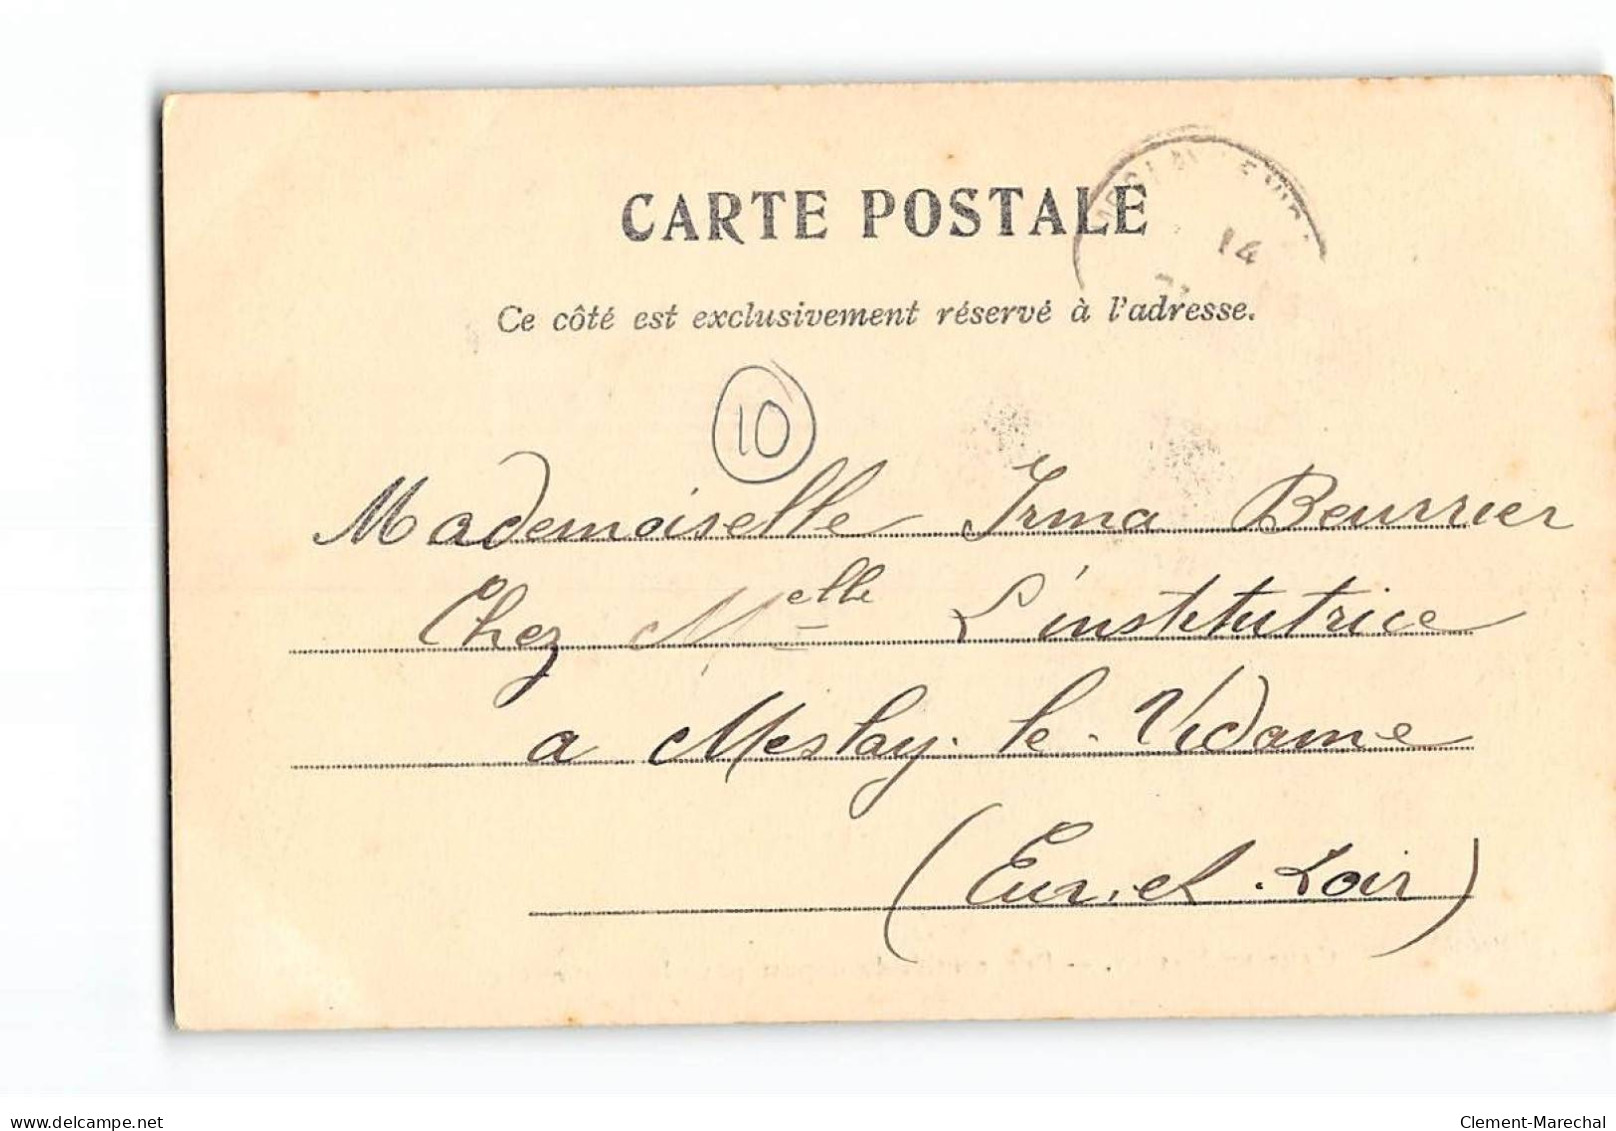 CARTE POSTALE
14
Ce côté est exclusivement réservé à l'adresse.
10
Mademoiselle Irma Beurrier
Chez Melle L'institutrice
a Meslay-le-Vidame
(Eur-et-Loir)
www.delcampe.net
Clement-Marechal